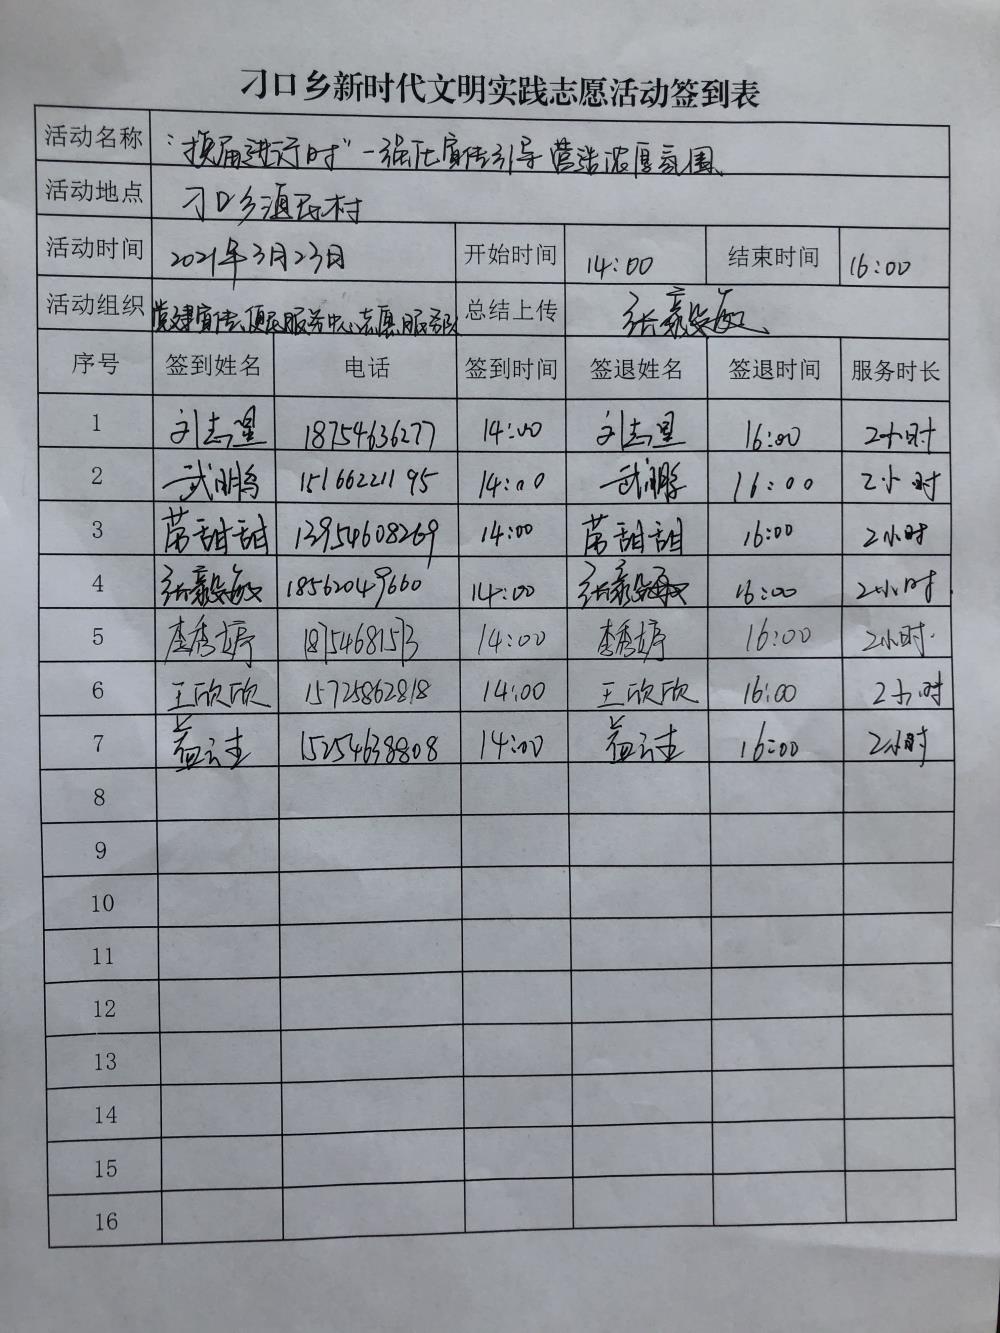 刁口乡新时代文明实践志愿活动签到表
活动名称 "换届进行时"一强化宣传引导 营造浓厚氛围
活动地点 刁口乡渔民村
活动时间 2021年3月23日 开始时间 14:00 结束时间 16:00
活动组织 党建宣传、便民服务中心志愿服务队 总结上传 张毅敏
序号 签到姓名 电话 签到时间 签退姓名 签退时间 服务时长
1 刘志星 18754636277 14:00 刘志星 16:00 2小时
2 武鹏 15166221195 14:00 武鹏 16:00 2小时
3 甜甜 13954608269 14:00 甜甜 16:00 2小时
4 张毅敏 18562049660 14:00 张毅敏 16:00 2小时
5 李秀婷 14:00 李秀婷 16:00 2小时
6 王欣欣 15725862818 14:00 王欣欣 16:00 2小时
7 15254638808 14:00 16:00 2小时
8
9
10
11
12
13
14
15
16